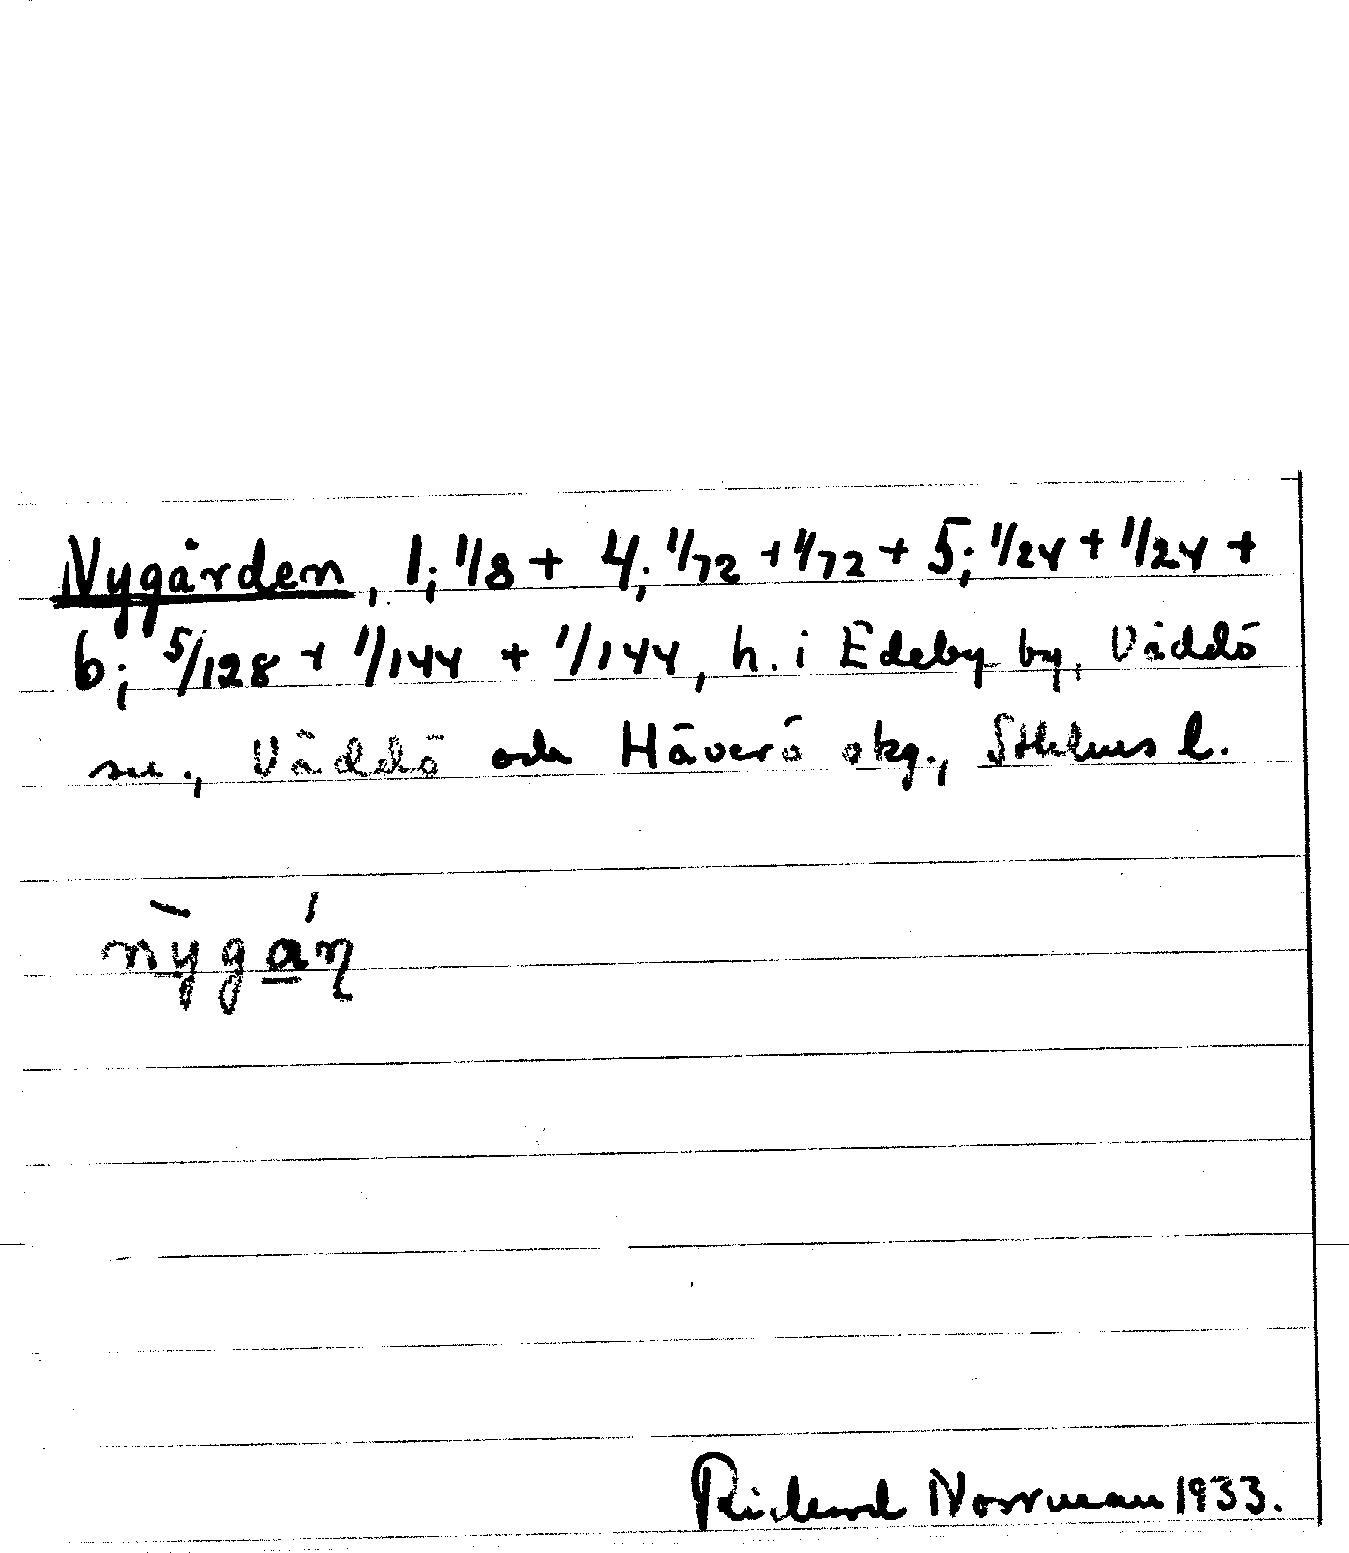 Nygården, 1; 1/8 + 4; 1/72 + 1/72 + 5; 1/24 + 1/24 +
6; 5/128 + 1/144 + 1/144, h. i Edeby by, Väddö
sn., Väddö och Häverö skg., Sthlms l.
nỳgán
Richard Norrman 1933.